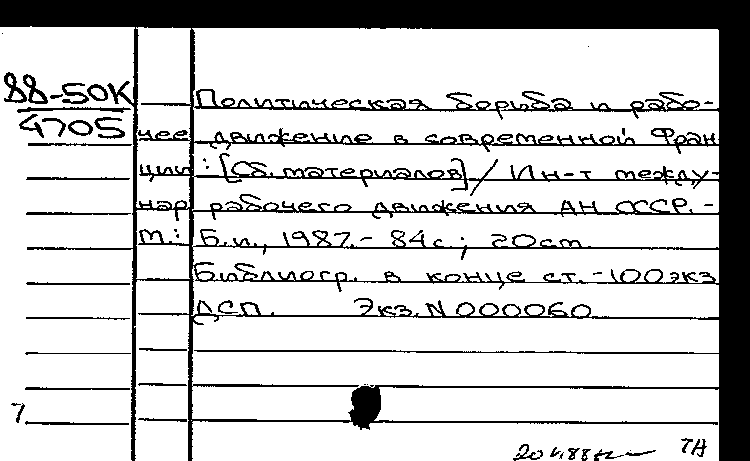 88-50К
4705
Политическая борьба и рабо-
чее движение в современной Фран
ции : [Сб. материалов] / Ин-т между-
нар рабочего движения АН СССР. -
М.: Б.и., 1987. - 84с.; 20см.
Библиогр. в конце ст. - 100экз
ДСП. Экз. N 000060
7
ТА